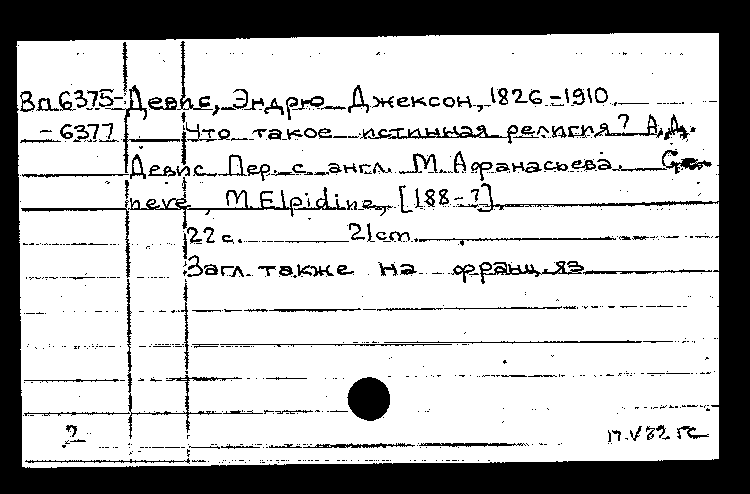 Вп 6375- Девис, Эндрю Джексон, 1826-1910
-6377 Что такое истинная религия? А.Д.
Девис Пер. с англ. М. Афанасьева. Ge-
neve, M. Elpidine, [188-?].
22 с. 21cm.
Загл. также на франц. яз
2